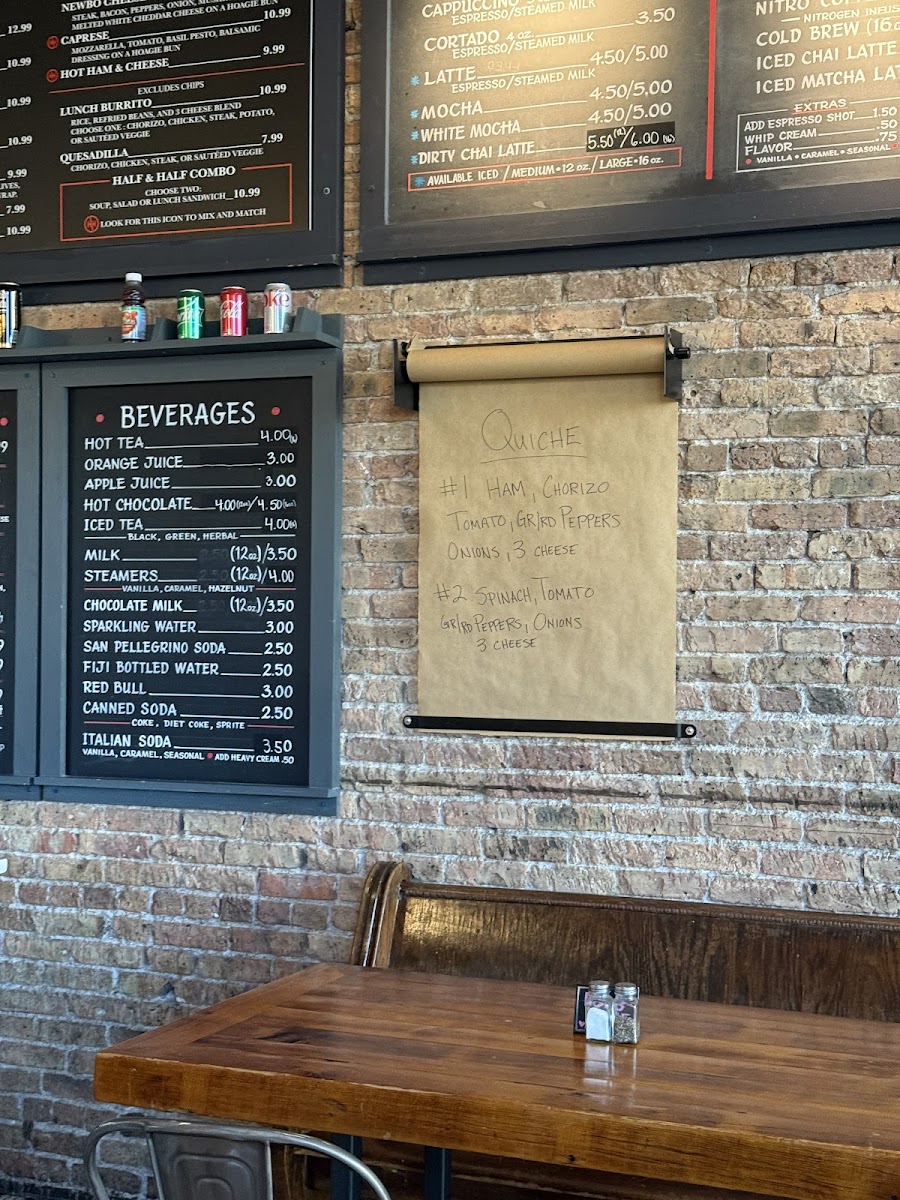 12.99
10.99
10.99
10.99
9.99
7.99
10.99
STEAK, BACON, PEPPERS, ONION,
MELTED WHITE CHEDDAR CHEESE ON A HOAGIE BUN
CAPRESE 10.99
MOZZARELLA, TOMATO, BASIL PESTO, BALSAMIC
DRESSING ON A HOAGIE BUN
HOT HAM & CHEESE 9.99
EXCLUDES CHIPS
LUNCH BURRITO 10.99
RICE, REFRIED BEANS, AND 3 CHEESE BLEND
CHOOSE ONE : CHORIZO, CHICKEN, STEAK, POTATO,
OR SAUTÉED VEGGIE
QUESADILLA 7.99
CHORIZO, CHICKEN, STEAK, OR SAUTÉED VEGGIE
HALF & HALF COMBO
CHOOSE TWO:
SOUP, SALAD OR LUNCH SANDWICH 10.99
LOOK FOR THIS ICON TO MIX AND MATCH
CAPPUCCINO
ESPRESSO/STEAMED MILK
CORTADO 4 oz. 3.50
ESPRESSO/STEAMED MILK
LATTE 4.50/5.00
ESPRESSO/STEAMED MILK
MOCHA 4.50/5.00
WHITE MOCHA 4.50/5.00
DIRTY CHAI LATTE 5.50 (12)/6.00 (16)
AVAILABLE ICED / MEDIUM • 12 oz. / LARGE • 16 oz.
NITRO
NITROGEN
COLD BREW (16
ICED CHAI LATTE
ICED MATCHA
EXTRAS
ADD ESPRESSO SHOT 1.50
WHIP CREAM .50
FLAVOR .75
VANILLA • CARAMEL • SEASONAL
BEVERAGES
HOT TEA 4.00
ORANGE JUICE 3.00
APPLE JUICE 3.00
HOT CHOCOLATE 4.00(12oz)/4.50(16oz)
ICED TEA 4.00
BLACK, GREEN, HERBAL
MILK (12oz)/3.50
STEAMERS (12oz)/4.00
VANILLA, CARAMEL, HAZELNUT
CHOCOLATE MILK (12oz)/3.50
SPARKLING WATER 3.00
SAN PELLEGRINO SODA 2.50
FIJI BOTTLED WATER 2.50
RED BULL 3.00
CANNED SODA 2.50
COKE, DIET COKE, SPRITE
ITALIAN SODA 3.50
VANILLA, CARAMEL, SEASONAL • ADD HEAVY CREAM .50
QUICHE
#1 HAM, CHORIZO
TOMATO, GR/RD PEPPERS
ONIONS, 3 CHEESE
#2 SPINACH, TOMATO
GR/RD PEPPERS, ONIONS
3 CHEESE